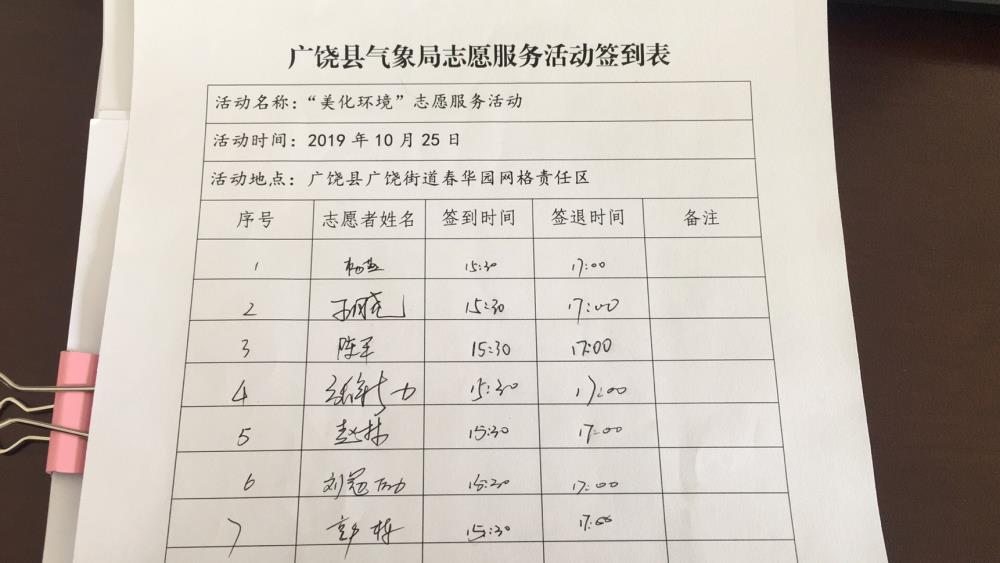 广饶县气象局志愿服务活动签到表
活动名称：“美化环境”志愿服务活动
活动时间：2019 年 10 月 25 日
活动地点：广饶县广饶街道春华园网格责任区
序号 志愿者姓名 签到时间 签退时间 备注
1 15:30 17:00
2 15:30 17:00
3 陈军 15:30 17:00
4 15:30 17:00
5 赵林 15:30 17:00
6 刘冠励 15:30 17:00
7 彭梅 15:30 17:00